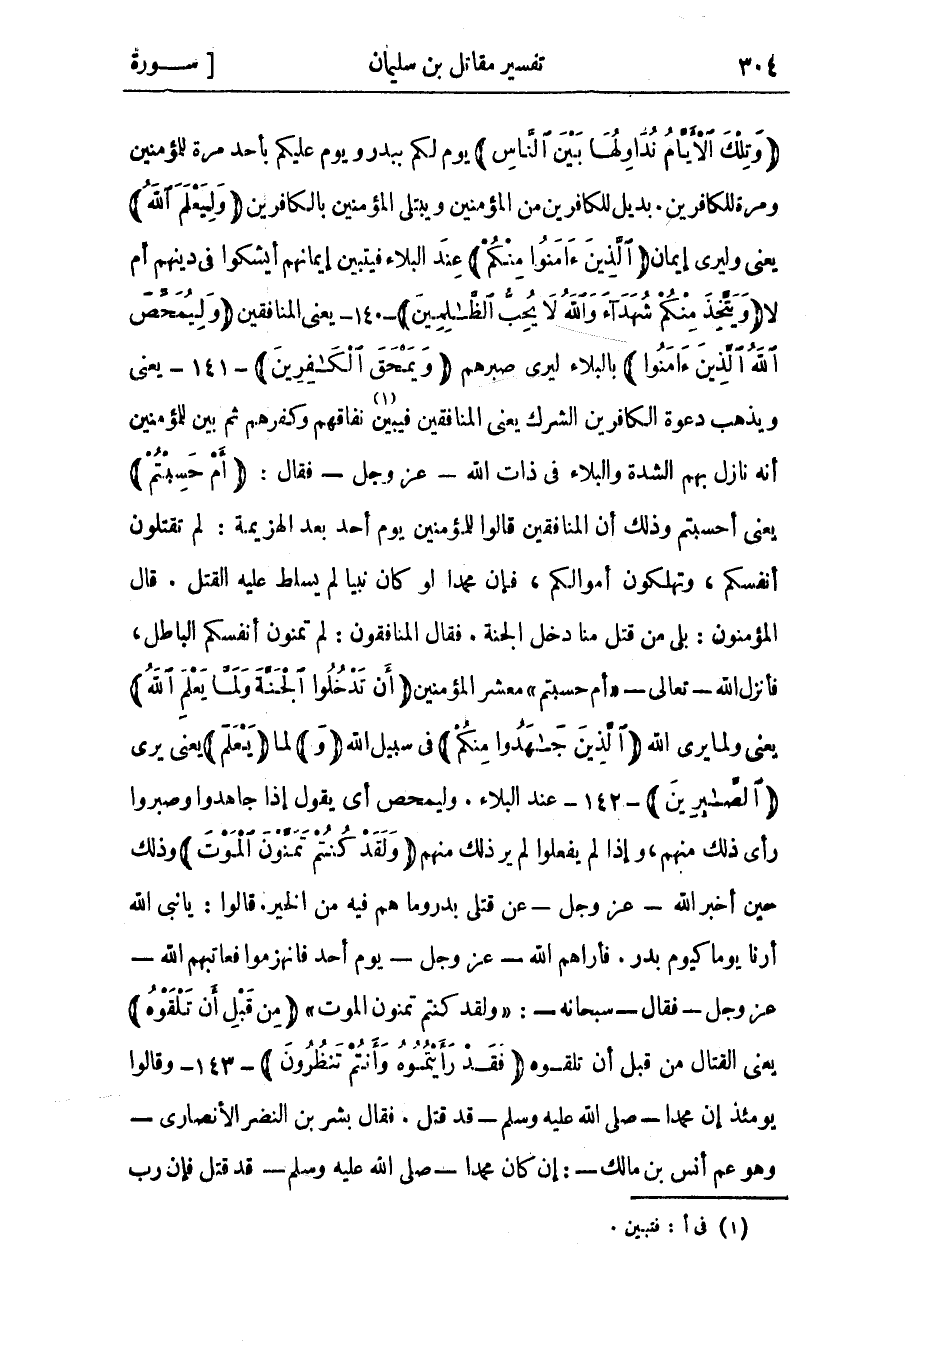 ٣٠٤ تفسير مقاتل بن سليمان [ ســـورة
﴿ وَتِلْكَ ٱلْأَيَّامُ نُدَاوِلُهَا بَيْنَ ٱلنَّاسِ ﴾ يوم لكم ببدر ويوم عليكم بأحد مرة للمؤمنين
ومرة للكافرين . بديل للكافرين من المؤمنين ويبتلى المؤمنين بالكافرين ﴿ وَلِيَعْلَمَ ٱللَّهُ ﴾
يعنى وليرى إيمان ﴿ ٱلَّذِينَ ءَامَنُوا مِنْكُمْ ﴾ عند البلاء فيتبين إيمانهم أيشكوا فى دينهم أم
لا ﴿ وَيَتَّخِذَ مِنْكُمْ شُهَدَآءَ وَٱللَّهُ لَا يُحِبُّ ٱلظَّـٰلِمِينَ ﴾ - ١٤٠ - يعنى المنافقين ﴿ وَلِيُمَحِّصَ
ٱللَّهُ ٱلَّذِينَ ءَامَنُوا ﴾ بالبلاء ليرى صبرهم ﴿ وَيَمْحَقَ ٱلْكَـٰفِرِينَ ﴾ - ١٤١ - يعنى
ويذهب دعوة الكافرين الشرك يعنى المنافقين فيبين (١) نفاقهم وكفرهم ثم بين للمؤمنين
أنه نازل بهم الشدة والبلاء فى ذات الله – عز وجل – فقال : ﴿ أَمْ حَسِبْتُمْ ﴾
يعنى أحسبتم وذلك أن المنافقين قالوا للمؤمنين يوم أحد بعد الهزيمة : لم تقتلون
أنفسكم ، وتهلكون أموالكم ، فإن محمدا لو كان نبيا لم يسلط عليه القتل . قال
المؤمنون : بلى من قتل منا دخل الجنة . فقال المنافقون : لم تمنون أنفسكم الباطل ،
فأنزل الله – تعالى – « أم حسبتم » معشر المؤمنين ﴿ أَن تَدْخُلُوا ٱلْجَنَّةَ وَلَمَّا يَعْلَمِ ٱللَّهُ ﴾
يعنى ولما يرى الله ﴿ ٱلَّذِينَ جَـٰهَدُوا مِنكُمْ ﴾ فى سبيل الله ﴿ وَ ﴾ لما ﴿ يَعْلَمَ ﴾ يعنى يرى
﴿ ٱلصَّـٰبِرِينَ ﴾ - ١٤٢ - عند البلاء . وليمحص أى يقول إذا جاهدوا وصبروا
رأى ذلك منهم ، وإذا لم يفعلوا لم ير ذلك منهم ﴿ وَلَقَدْ كُنتُمْ تَمَنَّوْنَ ٱلْمَوْتَ ﴾ وذلك
حين أخبر الله – عز وجل – عن قتلى بدر وما هم فيه من الخير . قالوا : يا نبى الله
أرنا يوما كيوم بدر . فأراهم الله – عز وجل – يوم أحد فانهزموا فعاتبهم الله –
عز وجل – فقال – سبحانه – : « ولقد كنتم تمنون الموت » ﴿ مِن قَبْلِ أَن تَلْقَوْهُ ﴾
يعنى القتال من قبل أن تلقوه ﴿ فَقَدْ رَأَيْتُمُوهُ وَأَنتُمْ تَنظُرُونَ ﴾ - ١٤٣ - وقالوا
يومئذ إن محمدا – صلى الله عليه وسلم – قد قتل . فقال بشر بن النضر الأنصارى –
وهو عم أنس بن مالك – : إن كان محمدا – صلى الله عليه وسلم – قد قتل فإن رب
(١) فى أ : فتبين .